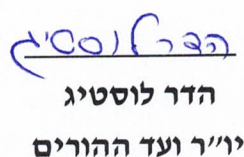 הדר לוסטיג
הדר לוסטיג
יו״ר ועד ההורים